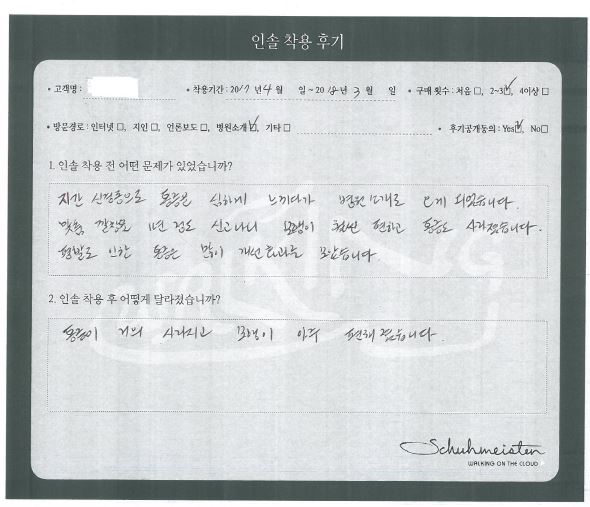 인솔 착용 후기
• 고객명 : • 착용기간 : 2017년 4월 일 ~ 2018년 3월 일 • 구매 횟수 : 처음 □, 2~3☑, 4이상 □
• 방문경로 : 인터넷 □, 지인 □, 언론보도 □, 병원소개 ☑, 기타 □ • 후기공개동의 : Yes ☑, No □
1. 인솔 착용 전 어떤 문제가 있었습니까?
지간 신경종으로 통증을 심하게 느끼다가 병원 소개로 오게 되었습니다.
맞춤 깔창을 1년 정도 신고나니 보행이 훨씬 편하고 통증도 사라졌습니다.
평발로 인한 통증은 많이 개선효과를 보았습니다.
2. 인솔 착용 후 어떻게 달라졌습니까?
통증이 거의 사라지고 보행이 아주 편해졌습니다.
Schuhmeister
WALKING ON THE CLOUD